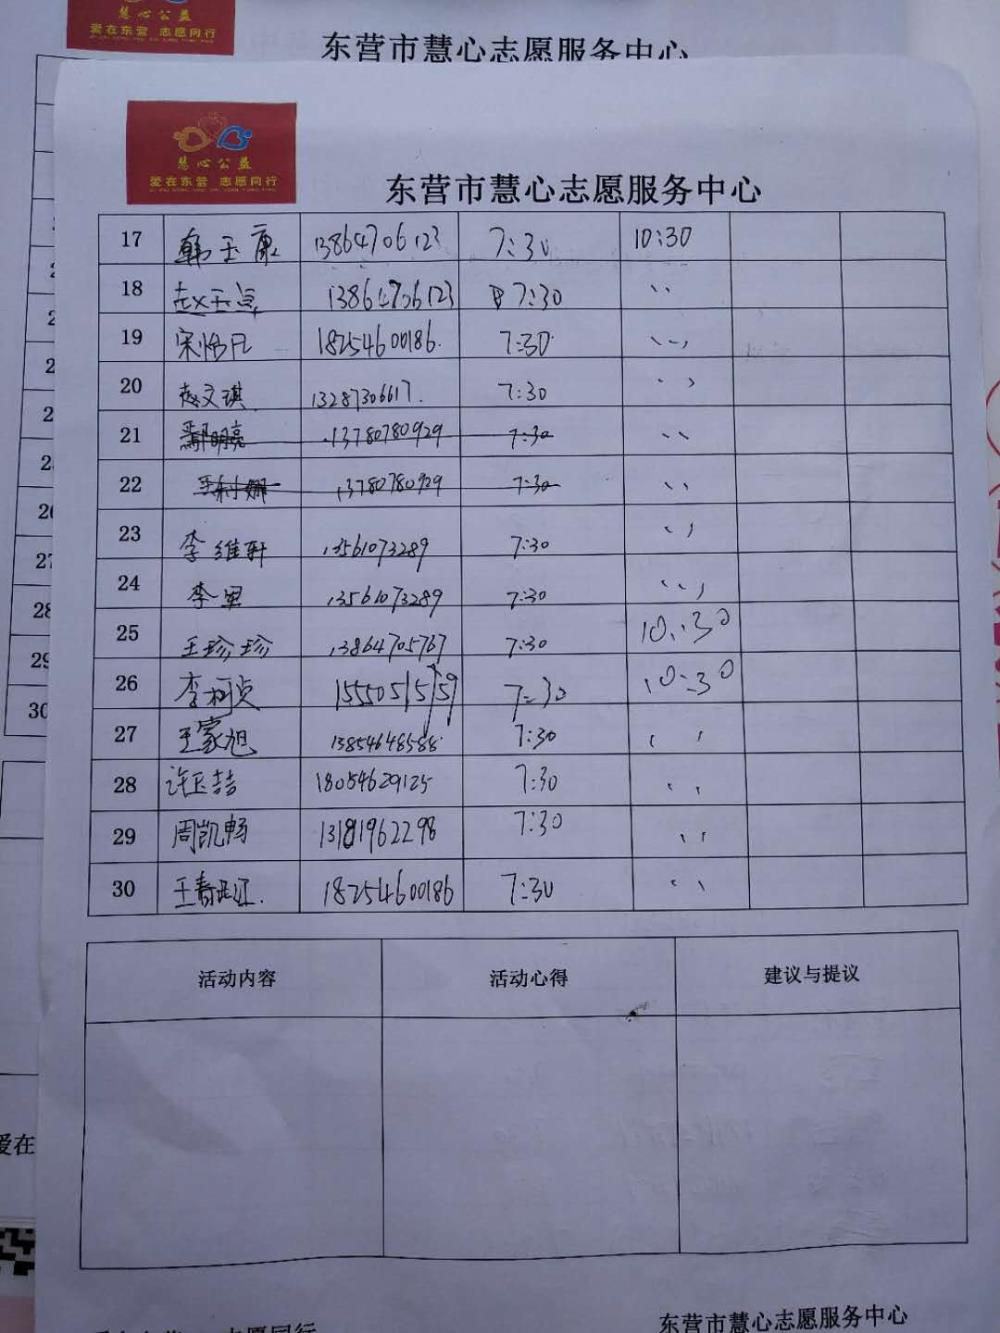 慧心公益
爱在东营 志愿同行
东营市慧心志愿服务中心
慧心公益
爱在东营 志愿同行
东营市慧心志愿服务中心
17 韩玉康 13864706123 7:30 10:30
18 赵玉 13864706123 7:30 〃
19 宋怡凡 18254600186. 7:30 〃
20 赵文琪 13287306617. 7:30 〃
21 明亮 13780780929 7:30 〃
22 王利娜 13780780929 7:30 〃
23 李维轩 13561073289 7:30 〃
24 李 13561073289 7:30 〃
25 王珍珍 13864705767 7:30 10:30
26 李柯贞 15550515159 7:30 10:30
27 王家旭 13854648588 7:30 〃
28 许玉喆 18054629125 7:30 〃
29 周凯畅 13181962298 7:30 〃
30 王春 18254600186 7:30 〃
27
28
29
30
活动内容 活动心得 建议与提议
爱在
东营市慧心志愿服务中心